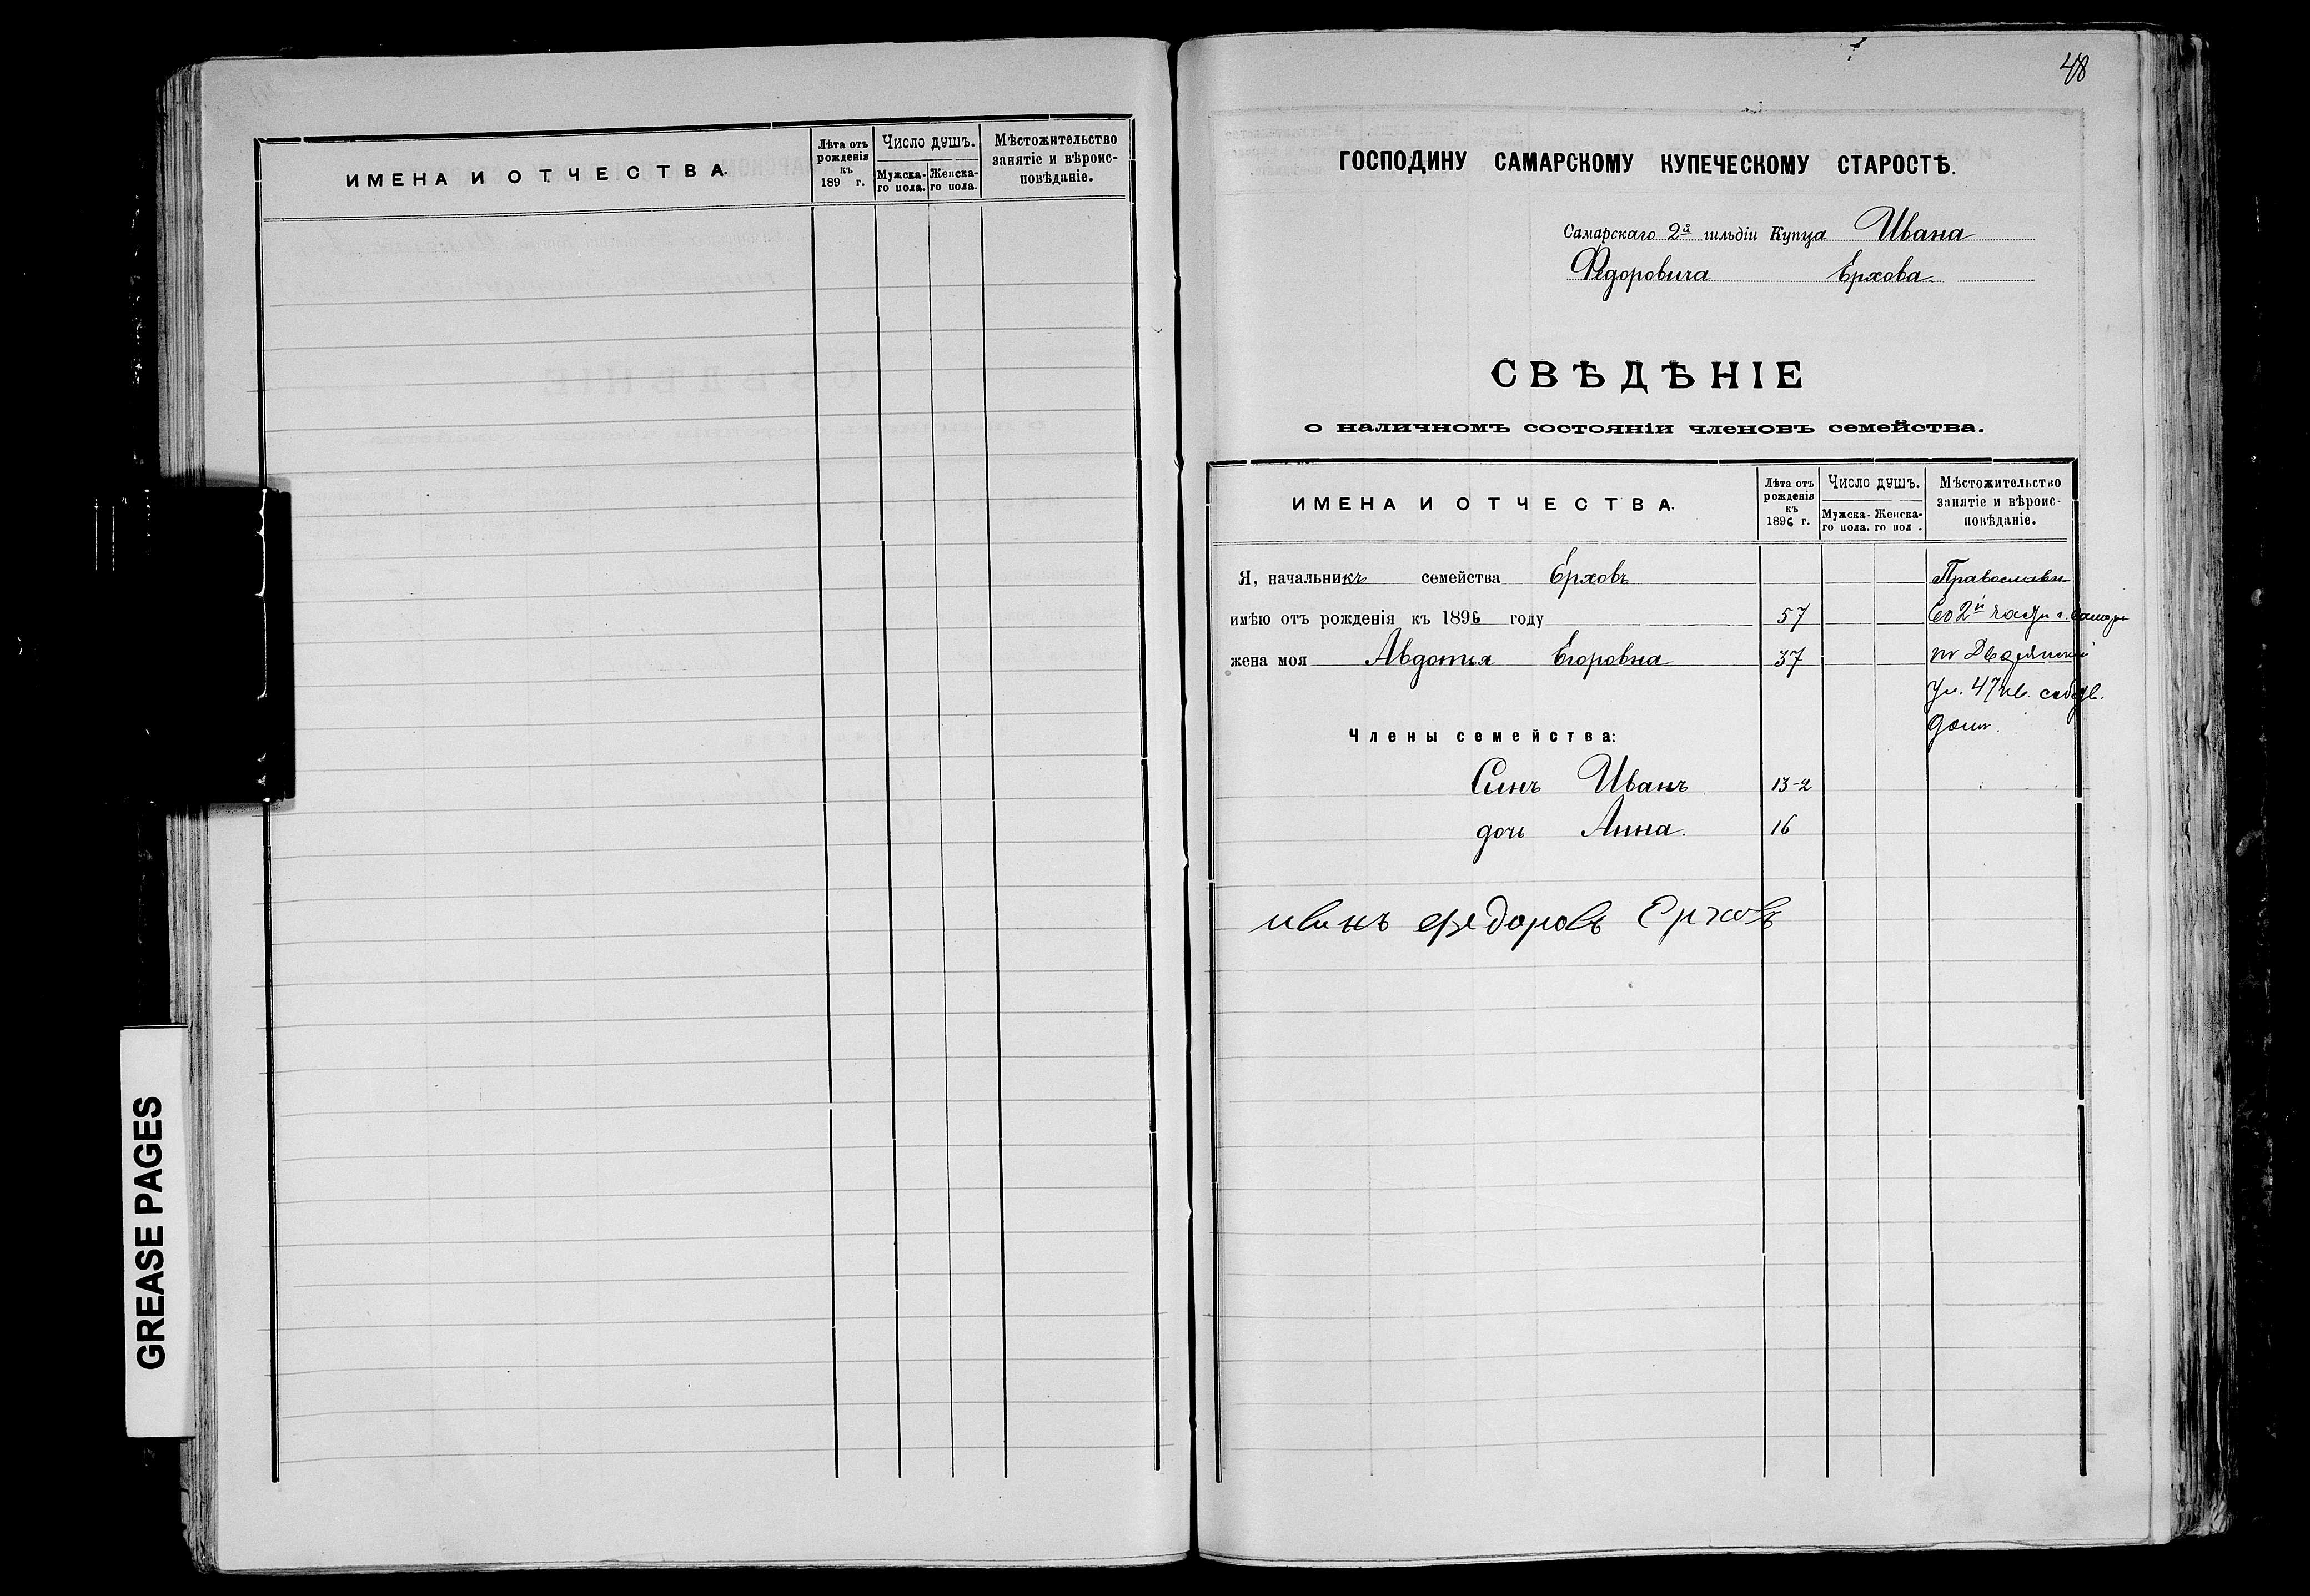 ИМЕНА И ОТЧЕСТВА.
Лѣта отъ рожденія къ 189 г.
Число душъ.
Мужска-го пола.
Женска-го пола.
Мѣстожительство занятіе и вѣроис-повѣданіе.
GREASE PAGES
48
ГОСПОДИНУ САМАРСКОМУ КУПЕЧЕСКОМУ СТАРОСТѢ.
Самарскаго 2й гильдіи Купца Ивана
Федоровича Ерхова
СВѢДѢНІЕ
о наличномъ состояніи членовъ семейства.
ИМЕНА И ОТЧЕСТВА.
Лѣта отъ рожденія къ 1896 г.
Число душъ.
Мужска-го пола.
Женска-го пол .
Мѣстожительство занятіе и вѣроис-повѣданіе.
Я, начальникъ семейства Ерховъ
имѣю отъ рожденія къ 1896 году 57
жена моя Авдотья Егоровна 37
Члены семейства:
Сынъ Иванъ 13-2
дочь Анна. 16
иванъ федоровъ Ерховъ
Православн
Во 2й части г. Самары
Дворянской
ул. 47 кв.
домъ.